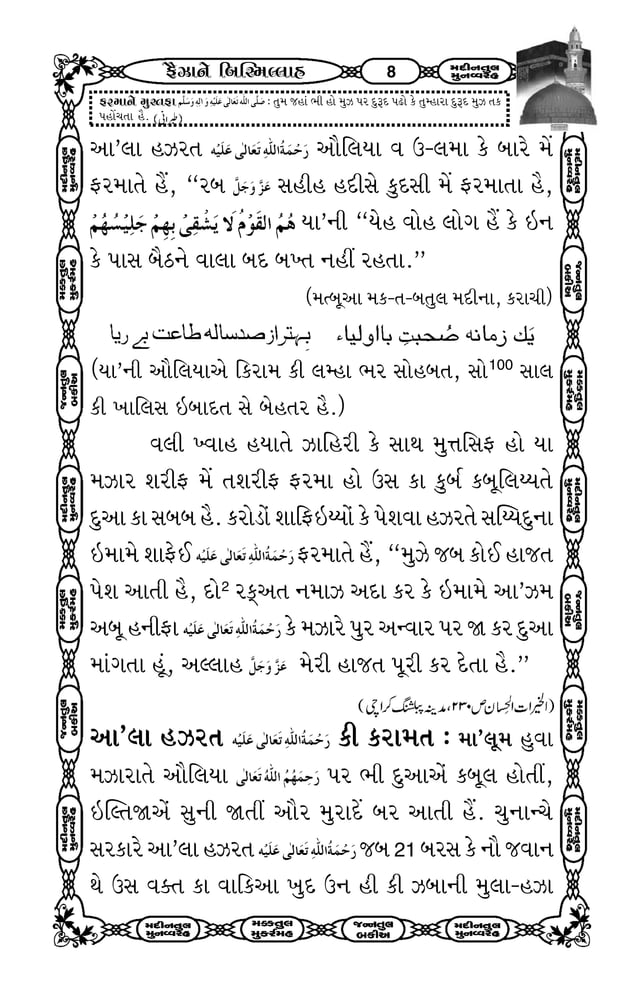 ફૈઝાને બિસ્મિલ્લાહ
8
મદીનતુલ
મુનવ્વરહ
ફરમાને મુસ્તફા صَلَّى اللهُ تَعَالٰى عَلَيْهِ وَاٰلِهٖ وَسَلَّم : તુમ જહાં ભી હો મુઝ પર દુરૂદ પઢો કે તુમ્હારા દુરૂદ મુઝ તક
પહોંચતા હૈ. (طبرانی)
આ’લા હઝરત رَحْمَةُاللهِ تَعَالٰى عَلَيْهِ ઔલિયા વ ઉ-લમા કે બારે મેં
ફરમાતે હૈં, ‘‘રબ عَزَّوَجَلَّ સહીહ હદીસે કુદસી મેં ફરમાતા હૈ,
هُمُ الْقَوْمُ لَا يَشْقٰى بِهِمْ جَلِيْسُهُمْ યા’ની ‘‘યેહ વોહ લોગ હૈં કે ઇન
કે પાસ બૈઠને વાલા બદ બખ્ત નહીં રહતા.’’
(મત્બૂઆ મક-ત-બતુલ મદીના, કરાચી)
يَك زمانه صُحبتِ بااولياء بہتر از صد ساله طاعت بے ريا
(યા’ની ઔલિયાએ કિરામ કી લમ્હા ભર સોહબત, સો100 સાલ
કી ખાલિસ ઇબાદત સે બેહતર હૈ.)
વલી ખ્વાહ હયાતે ઝાહિરી કે સાથ મુત્તસિફ હો યા
મઝાર શરીફ મેં તશરીફ ફરમા હો ઉસ કા કુર્બ કબૂલિય્યતે
દુઆ કા સબબ હૈ. કરોડોં શાફિઇય્યોં કે પેશવા હઝરતે સય્યિદુના
ઇમામે શાફેઈ رَحْمَةُاللهِ تَعَالٰى عَلَيْهِ ફરમાતે હૈં, ‘‘મુઝે જબ કોઈ હાજત
પેશ આતી હૈ, દો2 રક્અત નમાઝ અદા કર કે ઇમામે આ’ઝમ
અબૂ હનીફા رَحْمَةُاللهِ تَعَالٰى عَلَيْهِ કે મઝારે પુર અન્વાર પર જા કર દુઆ
માંગતા હૂં, અલ્લાહ عَزَّوَجَلَّ મેરી હાજત પૂરી કર દેતા હૈ.’’
(الخيرات الحسان ص ۲۳۰، مدینہ پبلشنگ کراچی)
આ’લા હઝરત رَحْمَةُاللهِ تَعَالٰى عَلَيْهِ કી કરામત : મા’લૂમ હુવા
મઝારાતે ઔલિયા رَحِمَهُمُ اللهُ تَعَالٰى પર ભી દુઆએં કબૂલ હોતીં,
ઇલ્તિજાએં સુની જાતીં ઔર મુરાદેં બર આતી હૈં. ચુનાન્ચે
સરકારે આ’લા હઝરત رَحْمَةُاللهِ تَعَالٰى عَلَيْهِ જબ 21 બરસ કે નૌ જવાન
થે ઉસ વક્ત કા વાકિઆ ખુદ ઉન હી કી ઝબાની મુલા-હઝા
મદીનતુલ
મુનવ્વરહ
મક્કતુલ
મુકર્રમહ
જન્નતુલ
બકીઅ
મદીનતુલ
મુનવ્વરહ